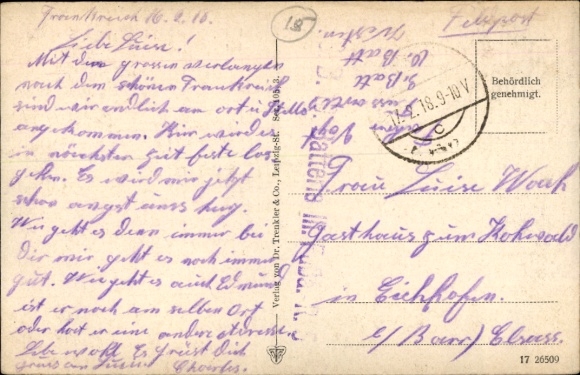 Frankreich 16.2.18.
Liebe Luise!
Mit dem grossen verlangen
nach dem schönen Frankreich
sind wir endlich am ort u Stelle
angekommen. Hier wird es
in nächster zeit feste los
gehn. Es wird mir jetzt
schon angst ums herz.
Wie geht es denn immer bei
Dir mir geht es noch immer
gut. Wie geht es auch Edmund
ist er noch am selben Ort
oder hat er eine andere Adresse.
Lebe wohl Es grüst Dich
Charles.
18
Verlag von Dr. Trenkler & Co., Leipzig-St. Ser. 105, 3.
Feldpost
17.2.18.9-10 V
Behördlich
genehmigt.
Frau Luise Wach
Gasthaus zum Hohwald
in Eichhofen.
b/ Barr) Elsass.
17 26509